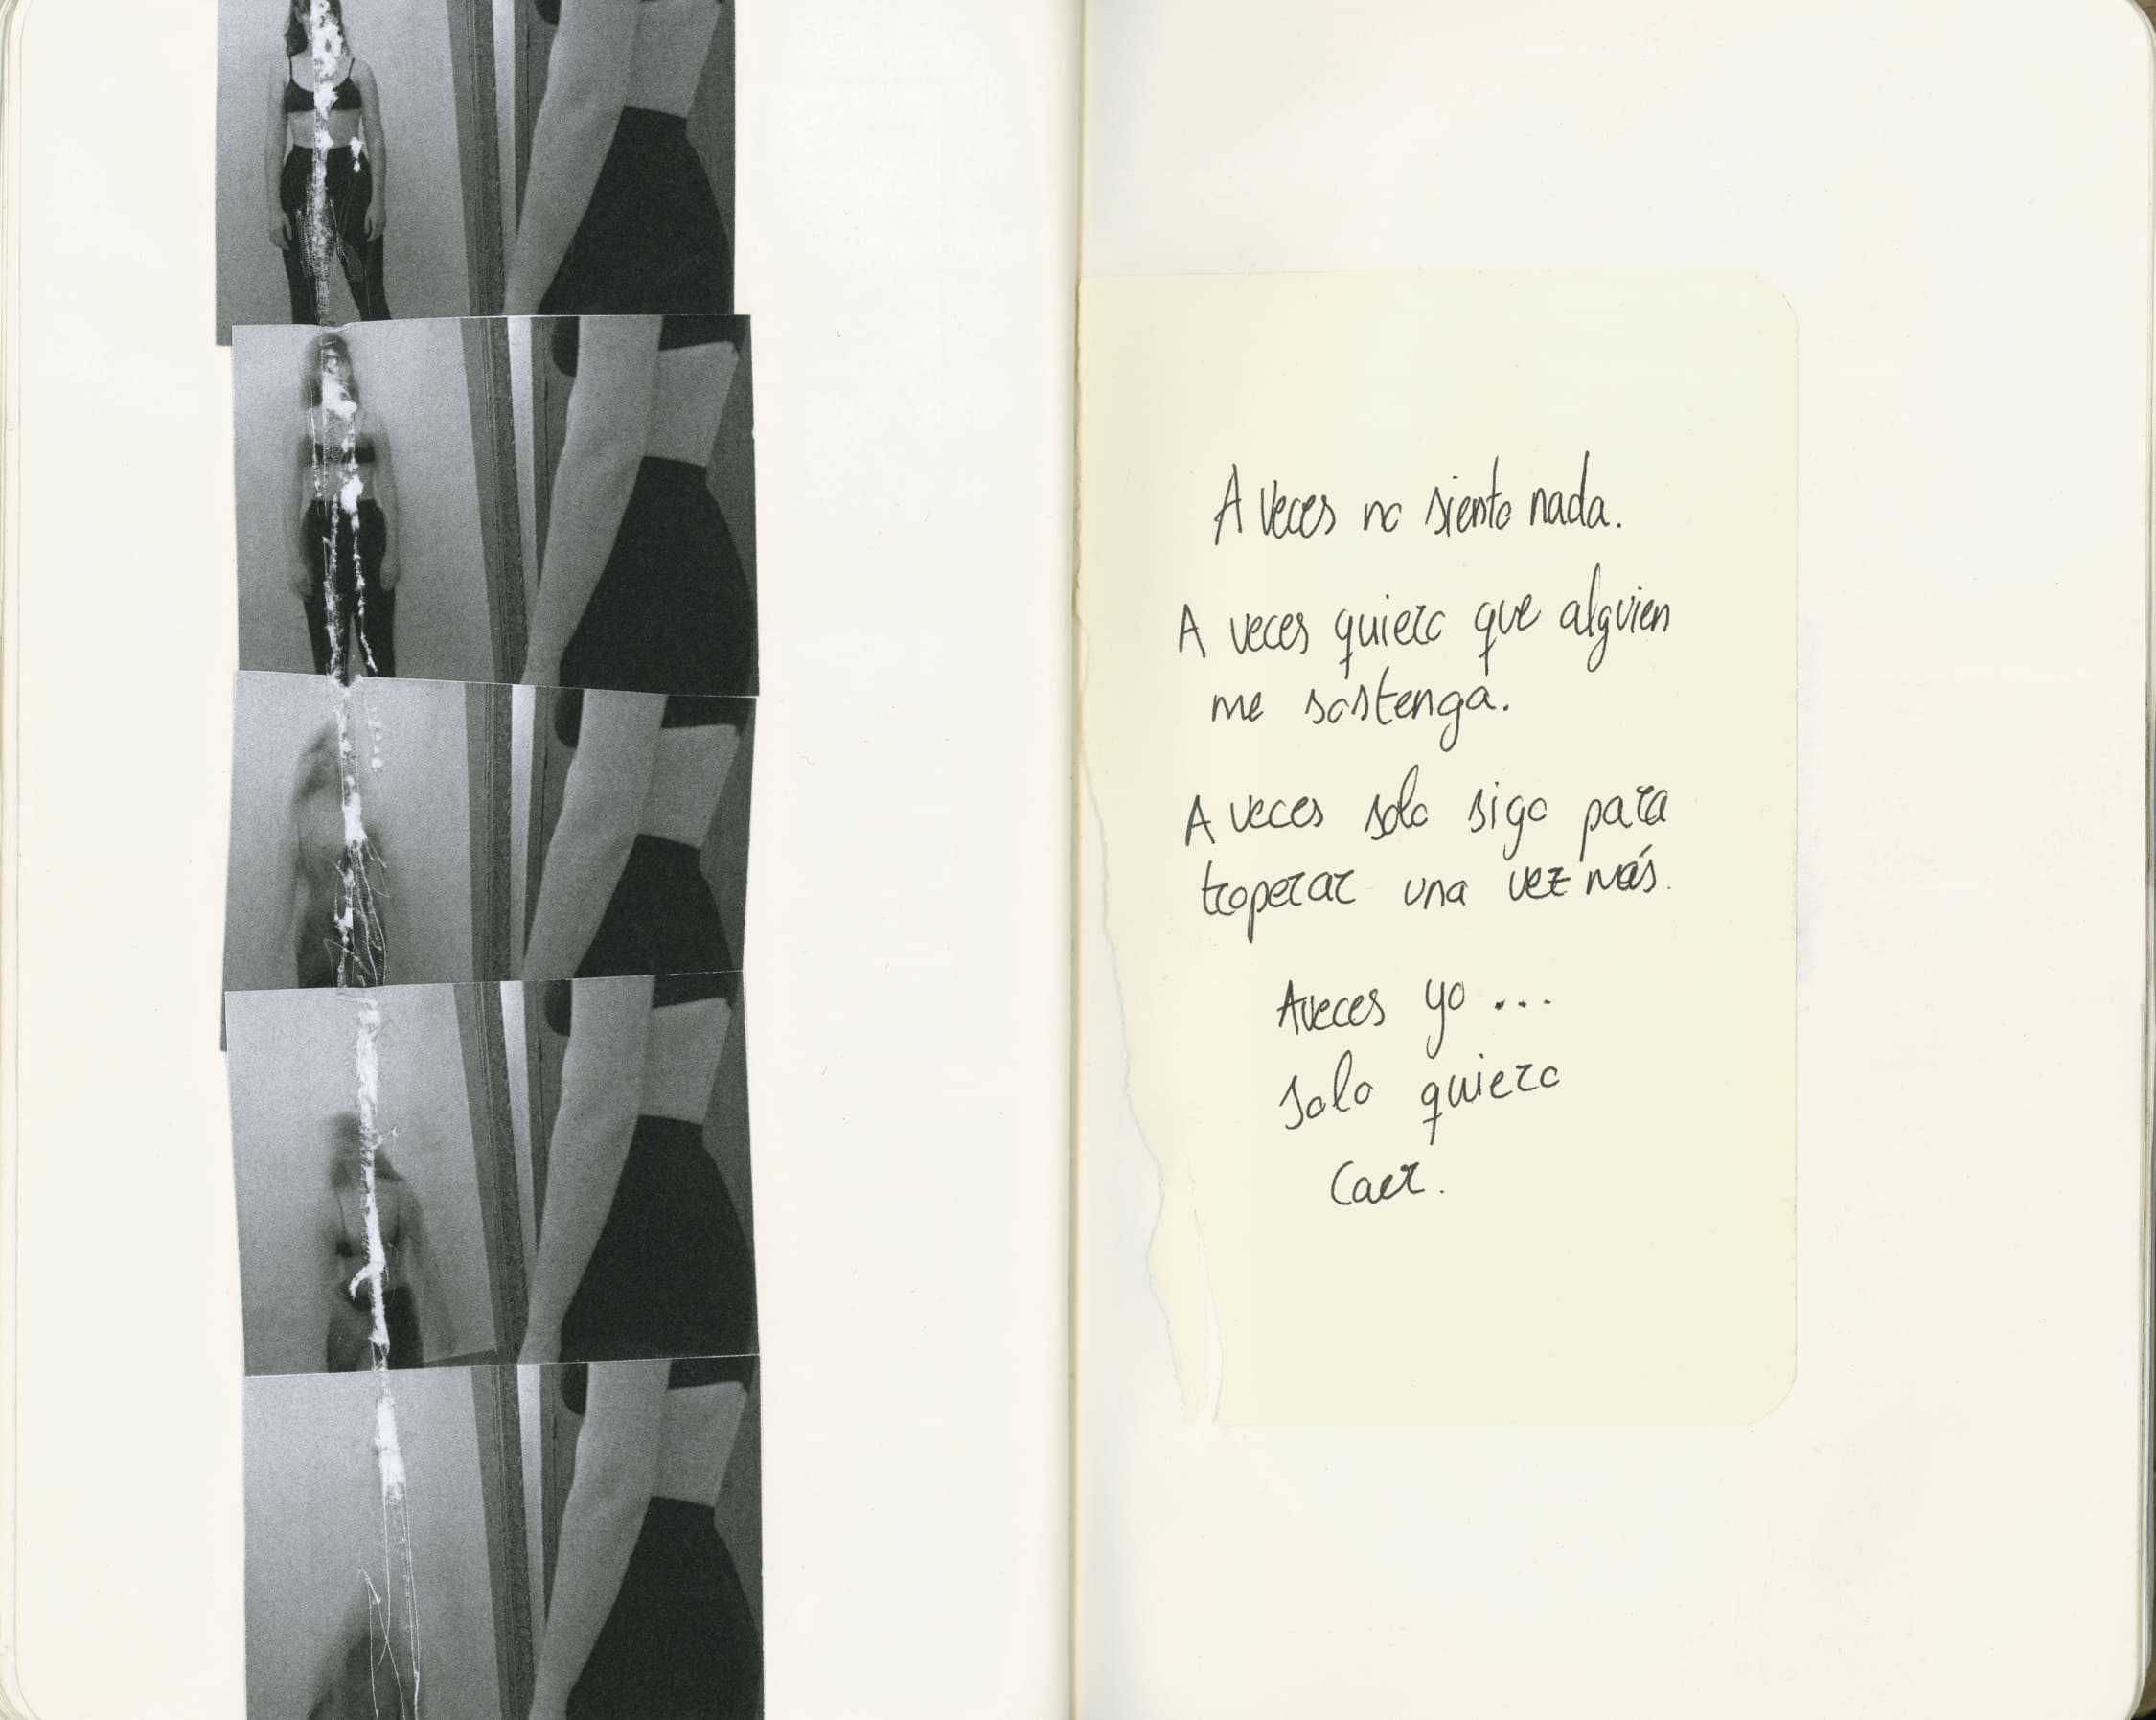 A veces no siento nada.
A veces quiero que alguien
me sostenga.
A veces solo sigo para
troperar una vez más.
A veces yo...
solo quiero
Caer.